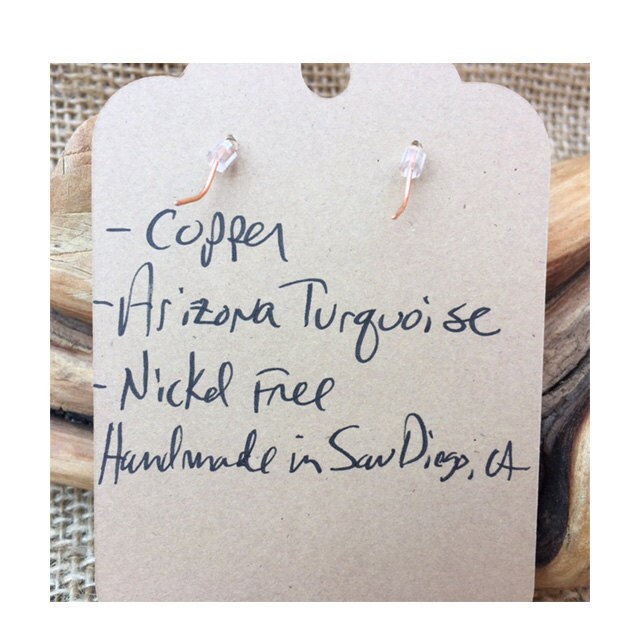 - Copper
- Arizona Turquoise
- Nickel Free
Handmade in San Diego, CA